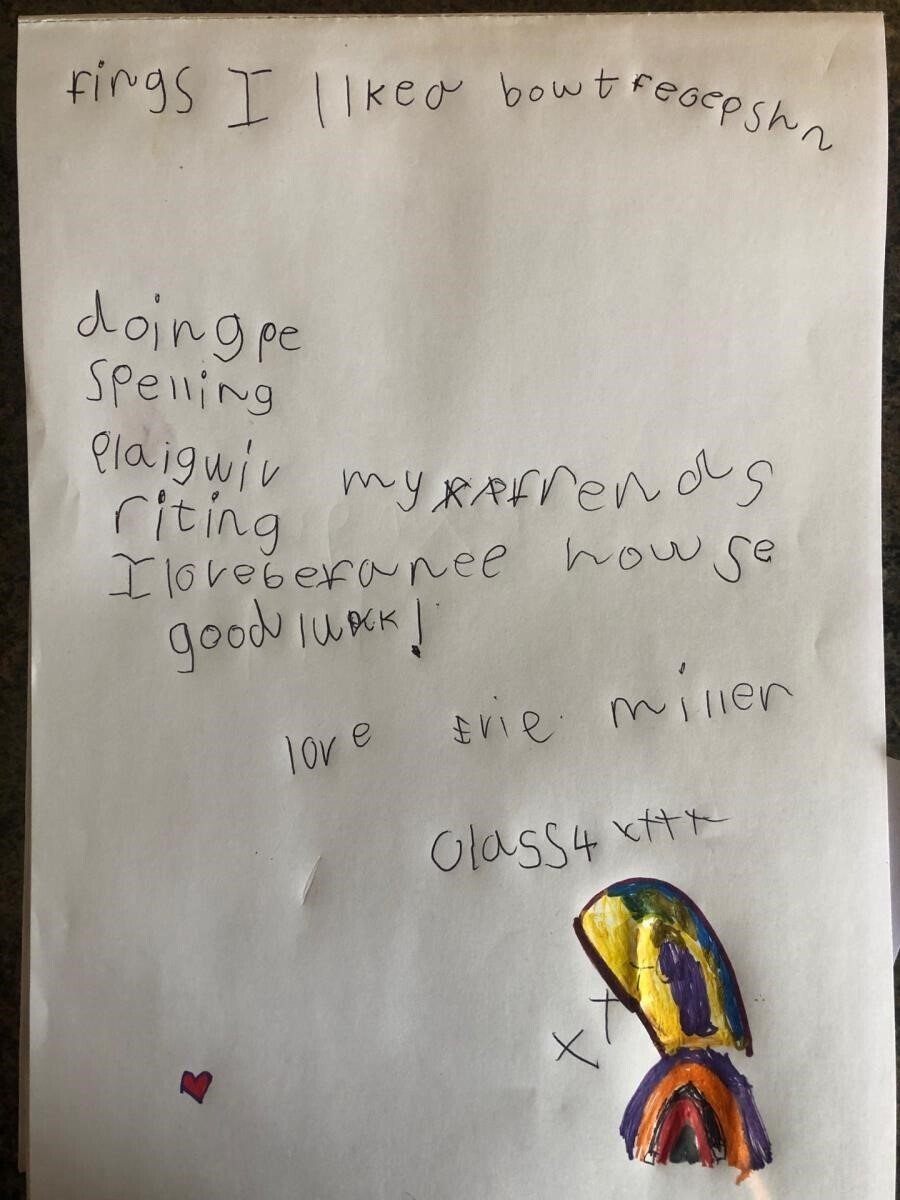 fings I liked bowt reacepshn
doing pe
spelling
plaigwiv my frends
riting
I love beranee howse
good luck!
love Evie miller
Class 4 x+++
x+